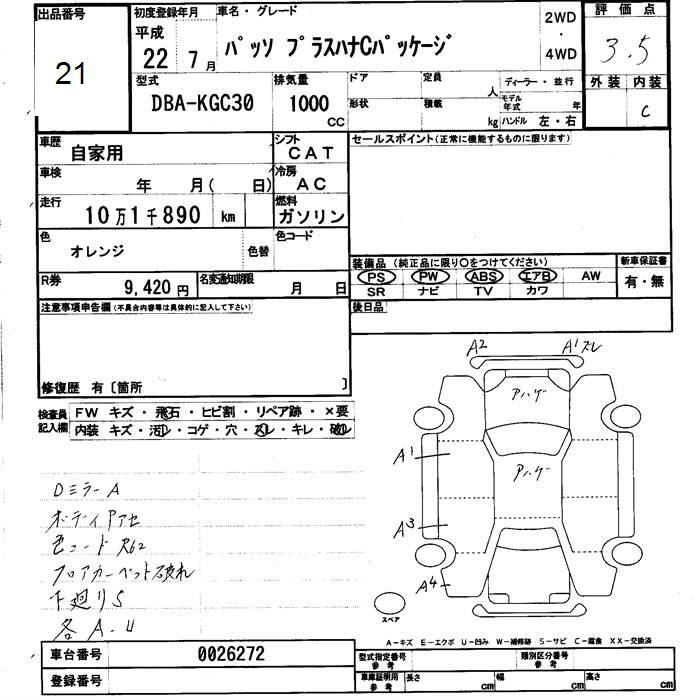 出品番号
21
初度登録年月
平成
22 7月
車名・グレード
パッソ プラスハナCパッケージ
2WD
・
4WD
評価点
3.5
外装 内装
C
型式
DBA-KGC30
排気量
1000
CC
ドア
定員
人
形状
積載
kg
ディーラー・並行
モデル年式 年
ハンドル 左・右
車歴
自家用
シフト
CAT
車検
年 月( 日)
冷房
AC
走行
10万1千890 km
燃料
ガソリン
色
オレンジ
色替
色コード
R券
9,420 円
名変通知期限
月 日
セールスポイント(正常に機能するものに限ります)
装備品(純正品に限り○をつけてください)
PS PW ABS エアB AW
SR ナビ TV カワ
新車保証書
有・無
後日品
注意事項申告欄(不具合内容等は具体的に記入して下さい)
修復歴 有〔箇所 〕
検査員記入欄
FW キズ・飛石・ヒビ割・リペア跡・×要
内装 キズ・汚レ・コゲ・穴・スレ・キレ・破レ
DミラーA
ボディアアセ
色コード R62
フロアカーペット破れ
下廻りS
各A.U
A2
A1 スレ
アハゲ
A1
アハゲ
A3
A4
スペア
A-キズ E-エクボ U-凹み W-補修跡 S-サビ C-腐食 XX-交換済
車台番号
0026272
登録番号
型式指定番号
参考
類別区分番号
参考
車庫証明用
参考
長さ cm
幅 cm
高さ cm